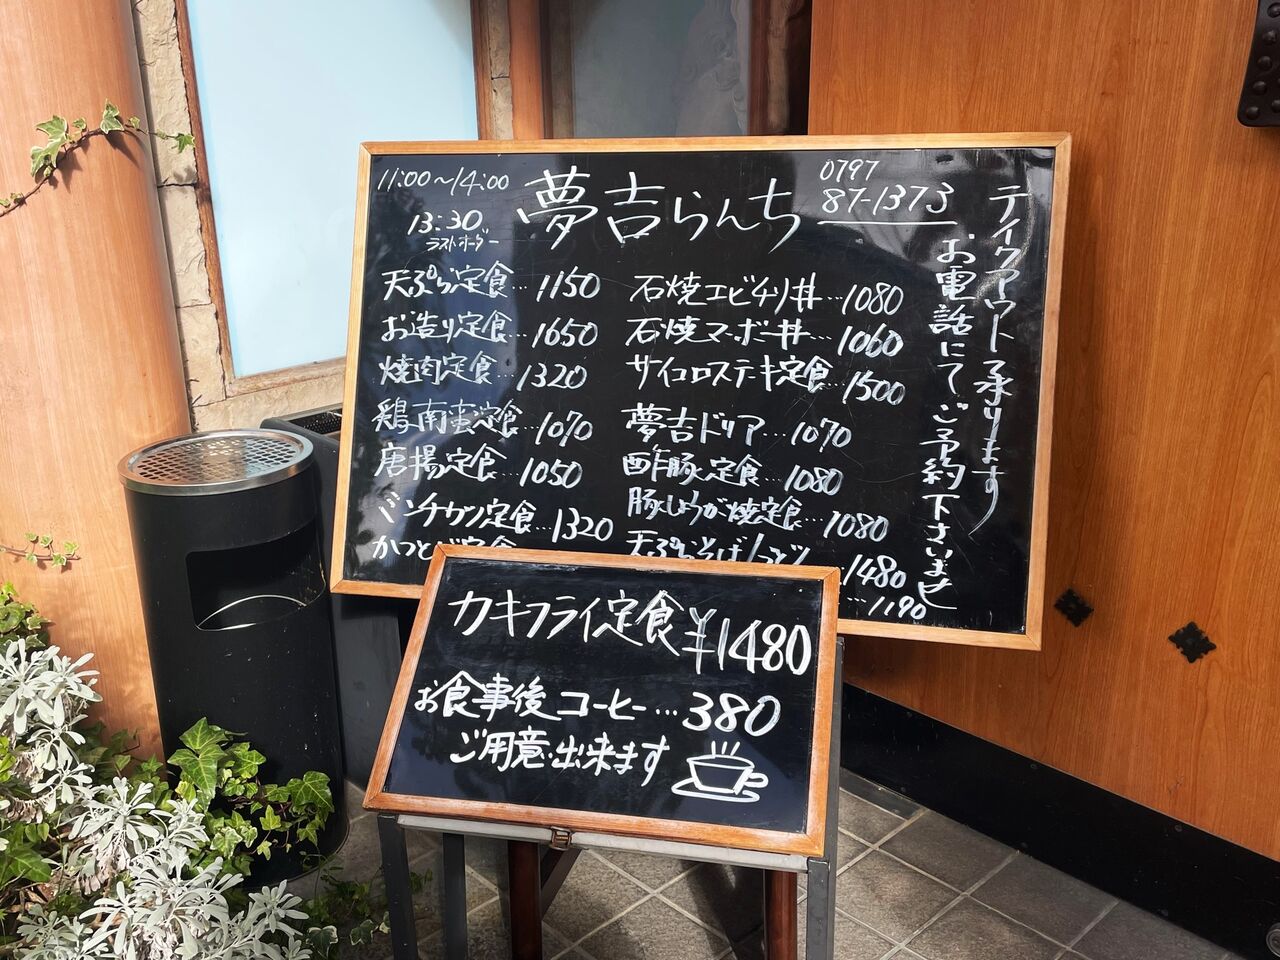 11:00〜14:00
13:30
ラストオーダー
夢吉らんち
0797
87-1373
天ぷら定食…1150
お造り定食…1650
焼肉定食…1320
鶏南蛮定食…1070
唐揚定食…1050
ミンチカツ定食…1320
石焼エビチリ丼…1080
石焼マーボー丼…1060
サイコロステーキ定食…1500
夢吉ドリア…1070
酢豚定食…1080
豚しょうが焼定食…1080
1480
…1190
テイクアウト承ります
お電話にてご予約下さいませ
カキフライ定食 ¥1480
お食事後コーヒー…380
ご用意出来ます